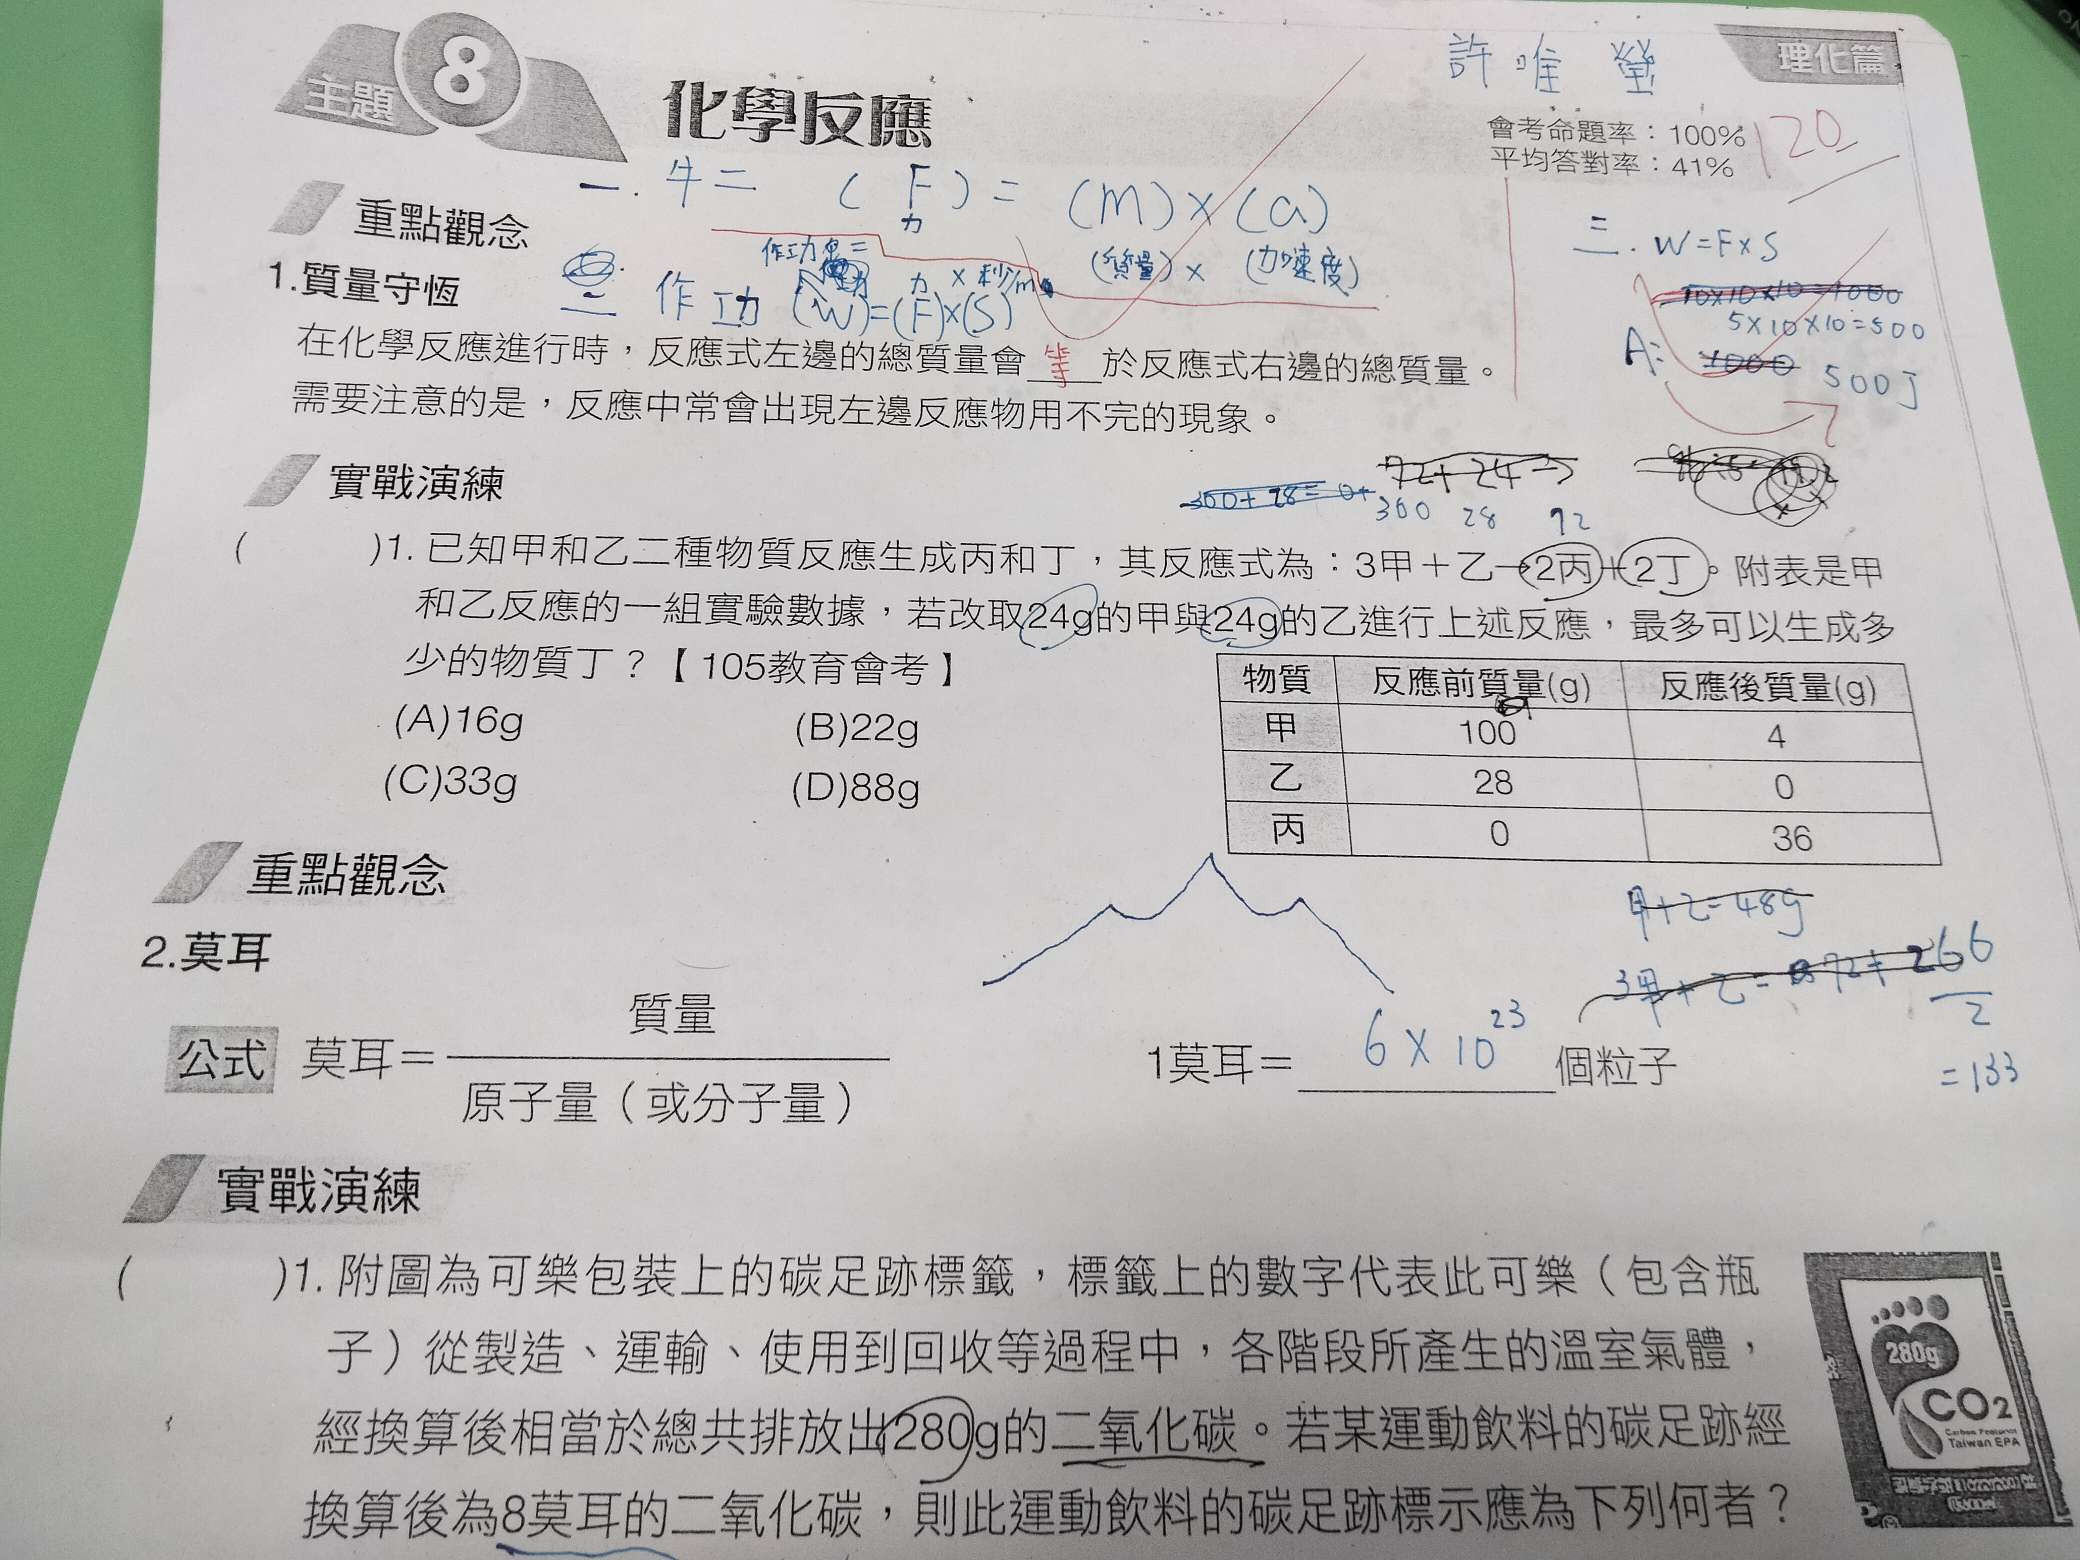 主題 8 化學反應
許唯瑩
理化篇
會考命題率：100%
平均答對率：41%
120
一. 牛二 (F)=(m)×(a)
力
(質量)×(加速度)
重點觀念
三. W=F×S
10×10×10=1000
5×10×10=500
A: 1000 500J
作功
力
二 作功 (W)=(F)×(S)
1.質量守恆
在化學反應進行時，反應式左邊的總質量會等於反應式右邊的總質量。
需要注意的是，反應中常會出現左邊反應物用不完的現象。
實戰演練
72+24→
300+28=0+
300 28 72
( )1. 已知甲和乙二種物質反應生成丙和丁，其反應式為：3甲＋乙→2丙＋2丁。附表是甲
和乙反應的一組實驗數據，若改取24g的甲與24g的乙進行上述反應，最多可以生成多
少的物質丁？【105教育會考】
(A)16g (B)22g
(C)33g (D)88g
物質 反應前質量(g) 反應後質量(g)
甲 100 4
乙 28 0
丙 0 36
甲+乙=48g
266
2
=133
重點觀念
2.莫耳
公式 莫耳＝
質量
原子量（或分子量）
1莫耳＝6×10^23個粒子
實戰演練
( )1. 附圖為可樂包裝上的碳足跡標籤，標籤上的數字代表此可樂（包含瓶
子）從製造、運輸、使用到回收等過程中，各階段所產生的溫室氣體，
經換算後相當於總共排放出280g的二氧化碳。若某運動飲料的碳足跡經
換算後為8莫耳的二氧化碳，則此運動飲料的碳足跡標示應為下列何者？
280g
CO2
Carbon Footprint
Taiwan EPA